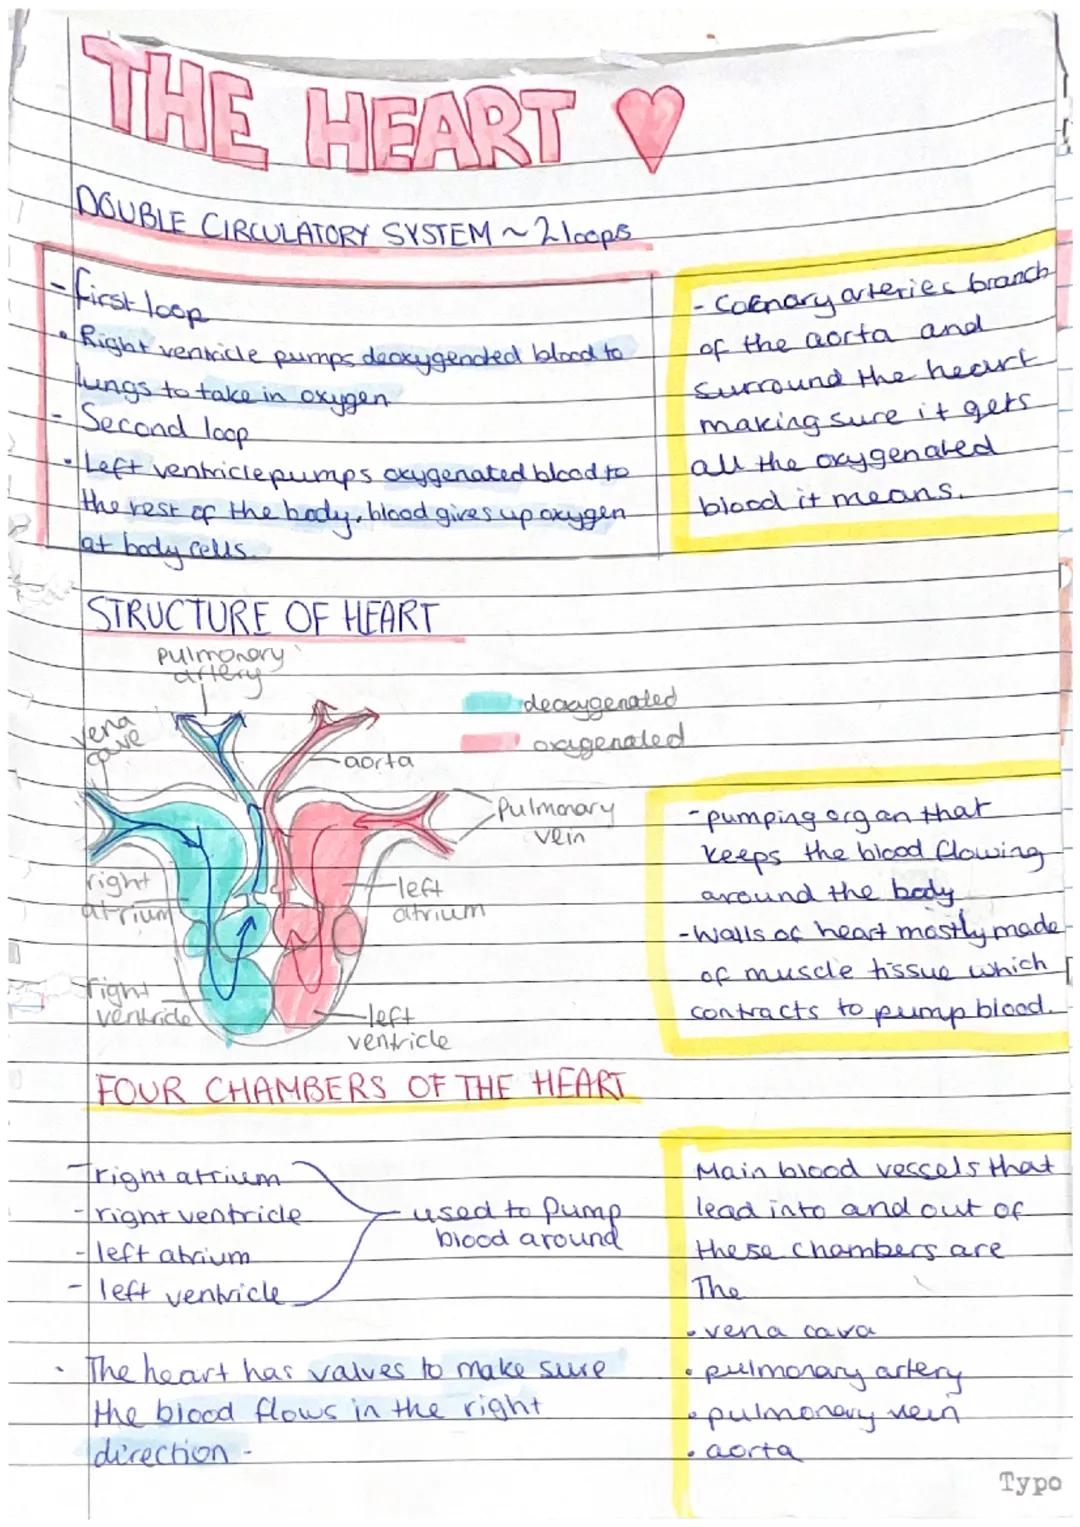 THE HEART
DOUBLE CIRCULATORY SYSTEM ~ 2 loops
- first loop
• Right ventricle pumps deoxygenated blood to
lungs to take in oxygen
- Second loop
• Left ventricle pumps oxygenated blood to
the rest of the body, blood gives up oxygen
at body cells.
- Coronary arteries branch
of the aorta and
surround the heart
making sure it gets
all the oxygenated
blood it means.
STRUCTURE OF HEART
pulmonary
artery
vena
cave
aorta
deoxygenated
oxagenated
Pulmonary
vein
right
atrium
left
atrium
right
ventricle
left
ventricle
- pumping organ that
keeps the blood flowing
around the body
- Walls of heart mostly made
of muscle tissue which
contracts to pump blood.
FOUR CHAMBERS OF THE HEART
- right atrium
- right ventricle
- left atrium
- left ventricle
used to pump
blood around
• The heart has valves to make sure
the blood flows in the right
direction -
Main blood vessels that
lead into and out of
these chambers are
The
• vena cava
• pulmonary artery
• pulmonary vein
• aorta
Typo